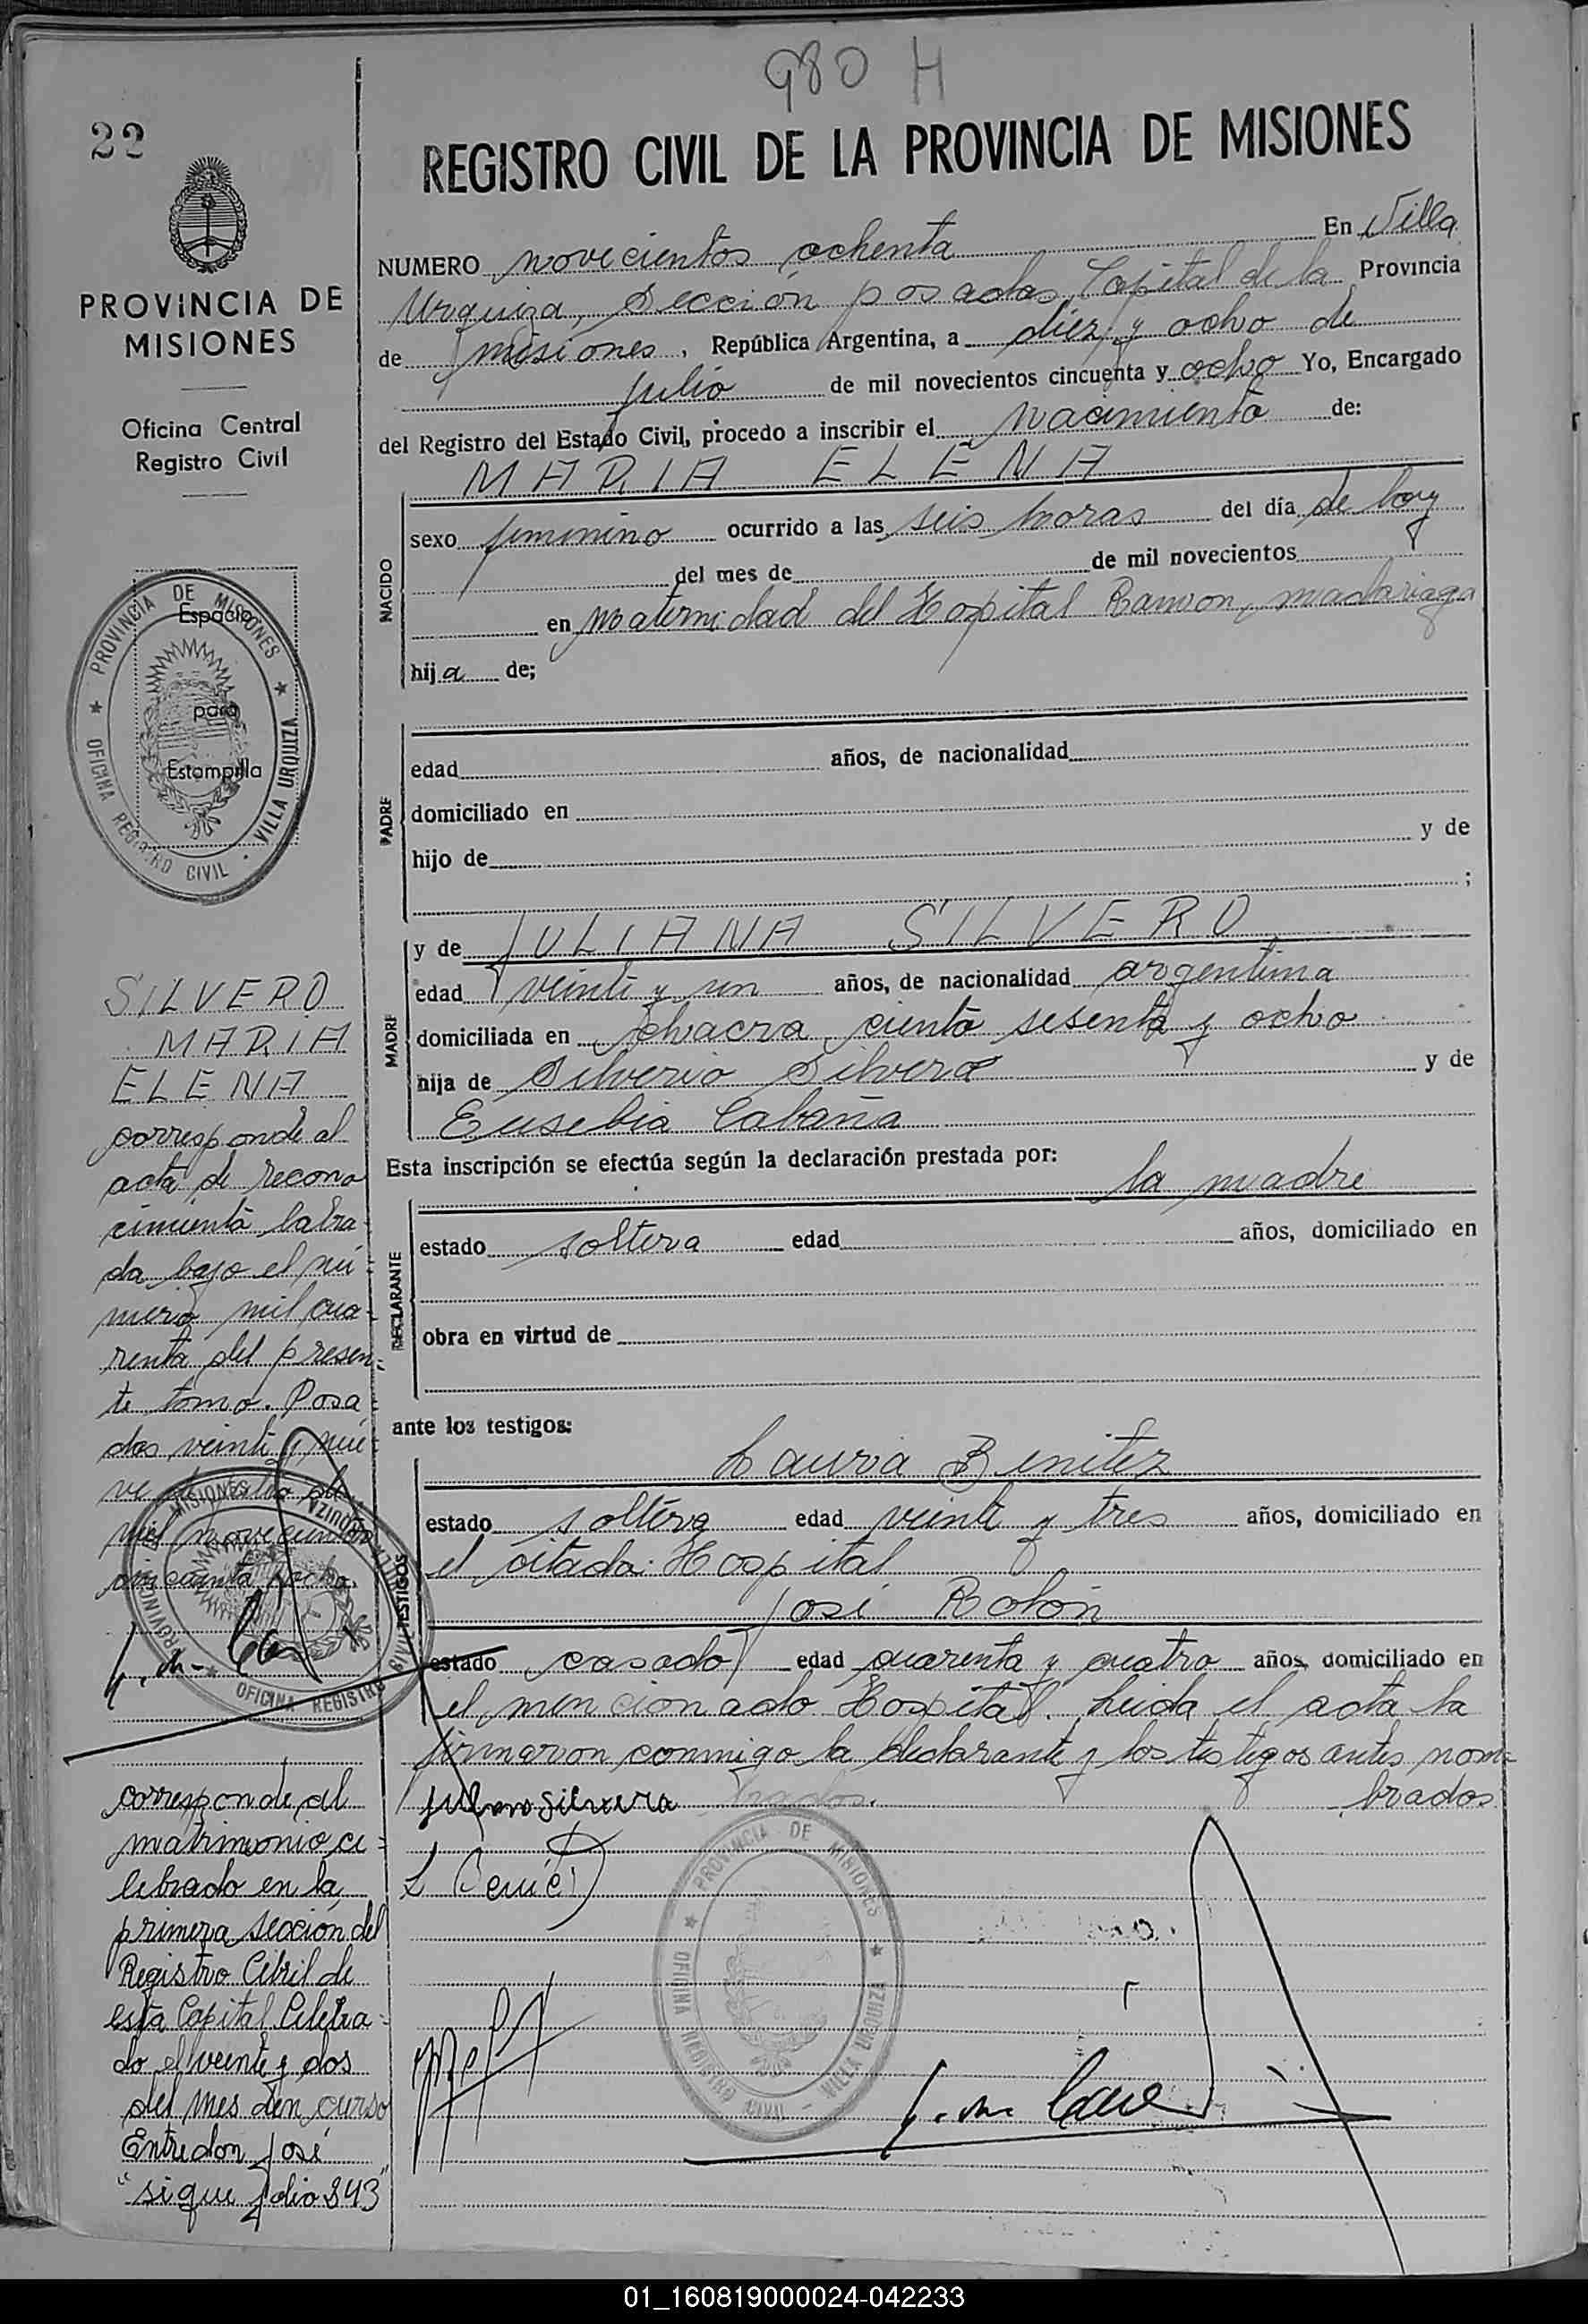 980 H
22
REGISTRO CIVIL DE LA PROVINCIA DE MISIONES
PROVINCIA DE
MISIONES
Oficina Central
Registro Civil
NUMERO novecientos ochenta En Villa
Urquiza, Sección posadas, Capital de la Provincia
de misiones, República Argentina, a diez y ocho de
julio de mil novecientos cincuenta y ocho Yo, Encargado
del Registro del Estado Civil, procedo a inscribir el Nacimiento de:
MARIA ELENA
NACIDO
sexo femenino ocurrido a las seis horas del día de hoy
del mes de de mil novecientos
en maternidad del Hospital Ramon madariaga
hija de;
PROVINCIA DE MISIONES
OFICINA REGISTRO CIVIL · VILLA URQUIZA
Espacio
para
Estampilla
PADRE
edad años, de nacionalidad
domiciliado en
hijo de y de
;
MADRE
y de JULIANA SILVERO
edad veinti y un años, de nacionalidad argentina
domiciliada en chacra ciento sesenta y ocho
hija de Silverio Silvero y de
Eusebia Cabaña
Esta inscripción se efectúa según la declaración prestada por:
la madre
DECLARANTE
estado soltera edad años, domiciliado en
obra en virtud de
ante los testigos:
TESTIGOS
Laura Benitez
estado soltera edad veinti y tres años, domiciliado en
el citado Hospital
José Rolón
estado casado edad cuarenta y cuatro años, domiciliado en
el mencionado Hospital. Leida el acta la
firmaron conmigo la declarante y los testigos antes nom=
brados
SILVERO
MARIA
ELENA
corresponde al
acta de recono
cimiento labra=
da bajo el nú=
mero mil cua=
renta del presen=
te tomo. Posa=
das veinti y nue=
ve de julio de
mil novecientos
cincuenta y ocho.
MISIONES
OFICINA REGISTRO CIVIL
corresponde al
matrimonio ce=
lebrado en la
primera sección del
Registro Civil de
esta Capital Celebra=
do el veinte y dos
del mes den curso
Entre don José
"sigue folio 343"
PROVINCIA DE MISIONES
OFICINA REGISTRO CIVIL - VILLA URQUIZA
01_160819000024-042233